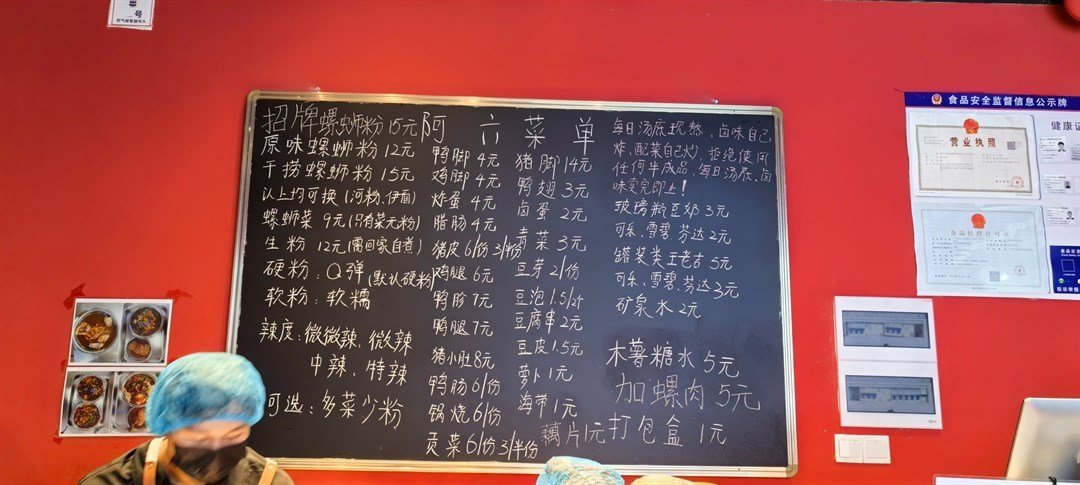 招牌螺蛳粉15元 阿六菜单
原味螺蛳粉12元
干捞螺蛳粉15元
以上均可换(河粉,伊面)
螺蛳菜9元(只有菜无粉)
生粉12元(需回家自煮)
硬粉:Q弹(默认硬粉)
软粉:软糯
辣度:微微辣、微辣
中辣、特辣
可选:多菜少粉
鸭脚4元
鸡脚4元
炸蛋4元
腊肠4元
猪皮6/份3/半份
鸡腿6元
鸭胗7元
鸭腿7元
猪小肚8元
鸭肠6/份
锅烧6/份
贡菜6/份3/半份
猪脚14元
鸭翅3元
卤蛋2元
青菜3元
豆芽2/份
豆泡1.5/对
豆腐串2元
豆皮1.5元
萝卜1元
海带1元
藕片1元
每日汤底现熬,卤味自己
炸,配菜自己炒,拒绝使用
任何半成品,每日汤底,卤
味卖完即止!
玻璃瓶豆奶3元
可乐,雪碧.芬达2元
罐装类王老吉5元
可乐、雪碧、芬达3元
矿泉水2元
木薯糖水5元
加螺肉5元
打包盒1元
食品安全监督信息公示牌
营业执照
食品经营许可证
健康证